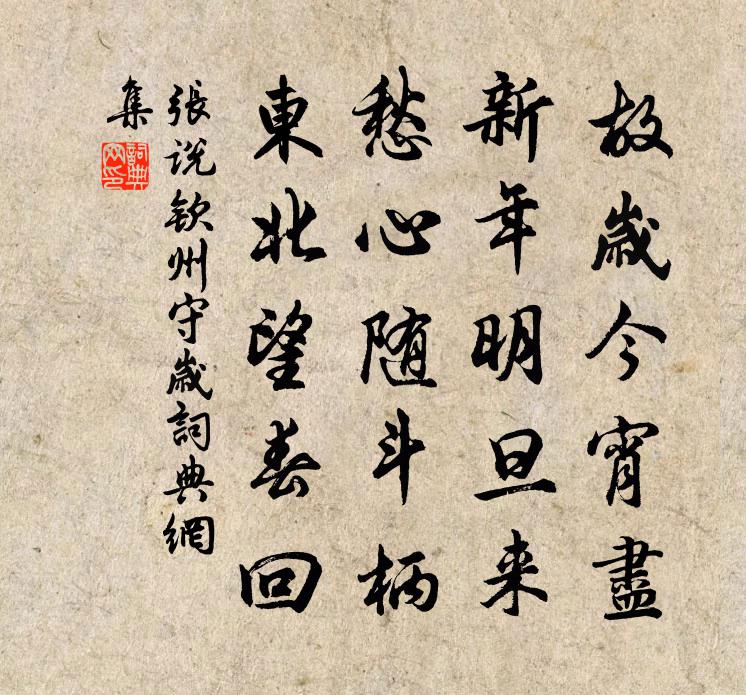 故歳今宵盡
新年明旦来
愁心随斗柄
東北望春回
張説欽州守歳詞典網
集
詞典
网印